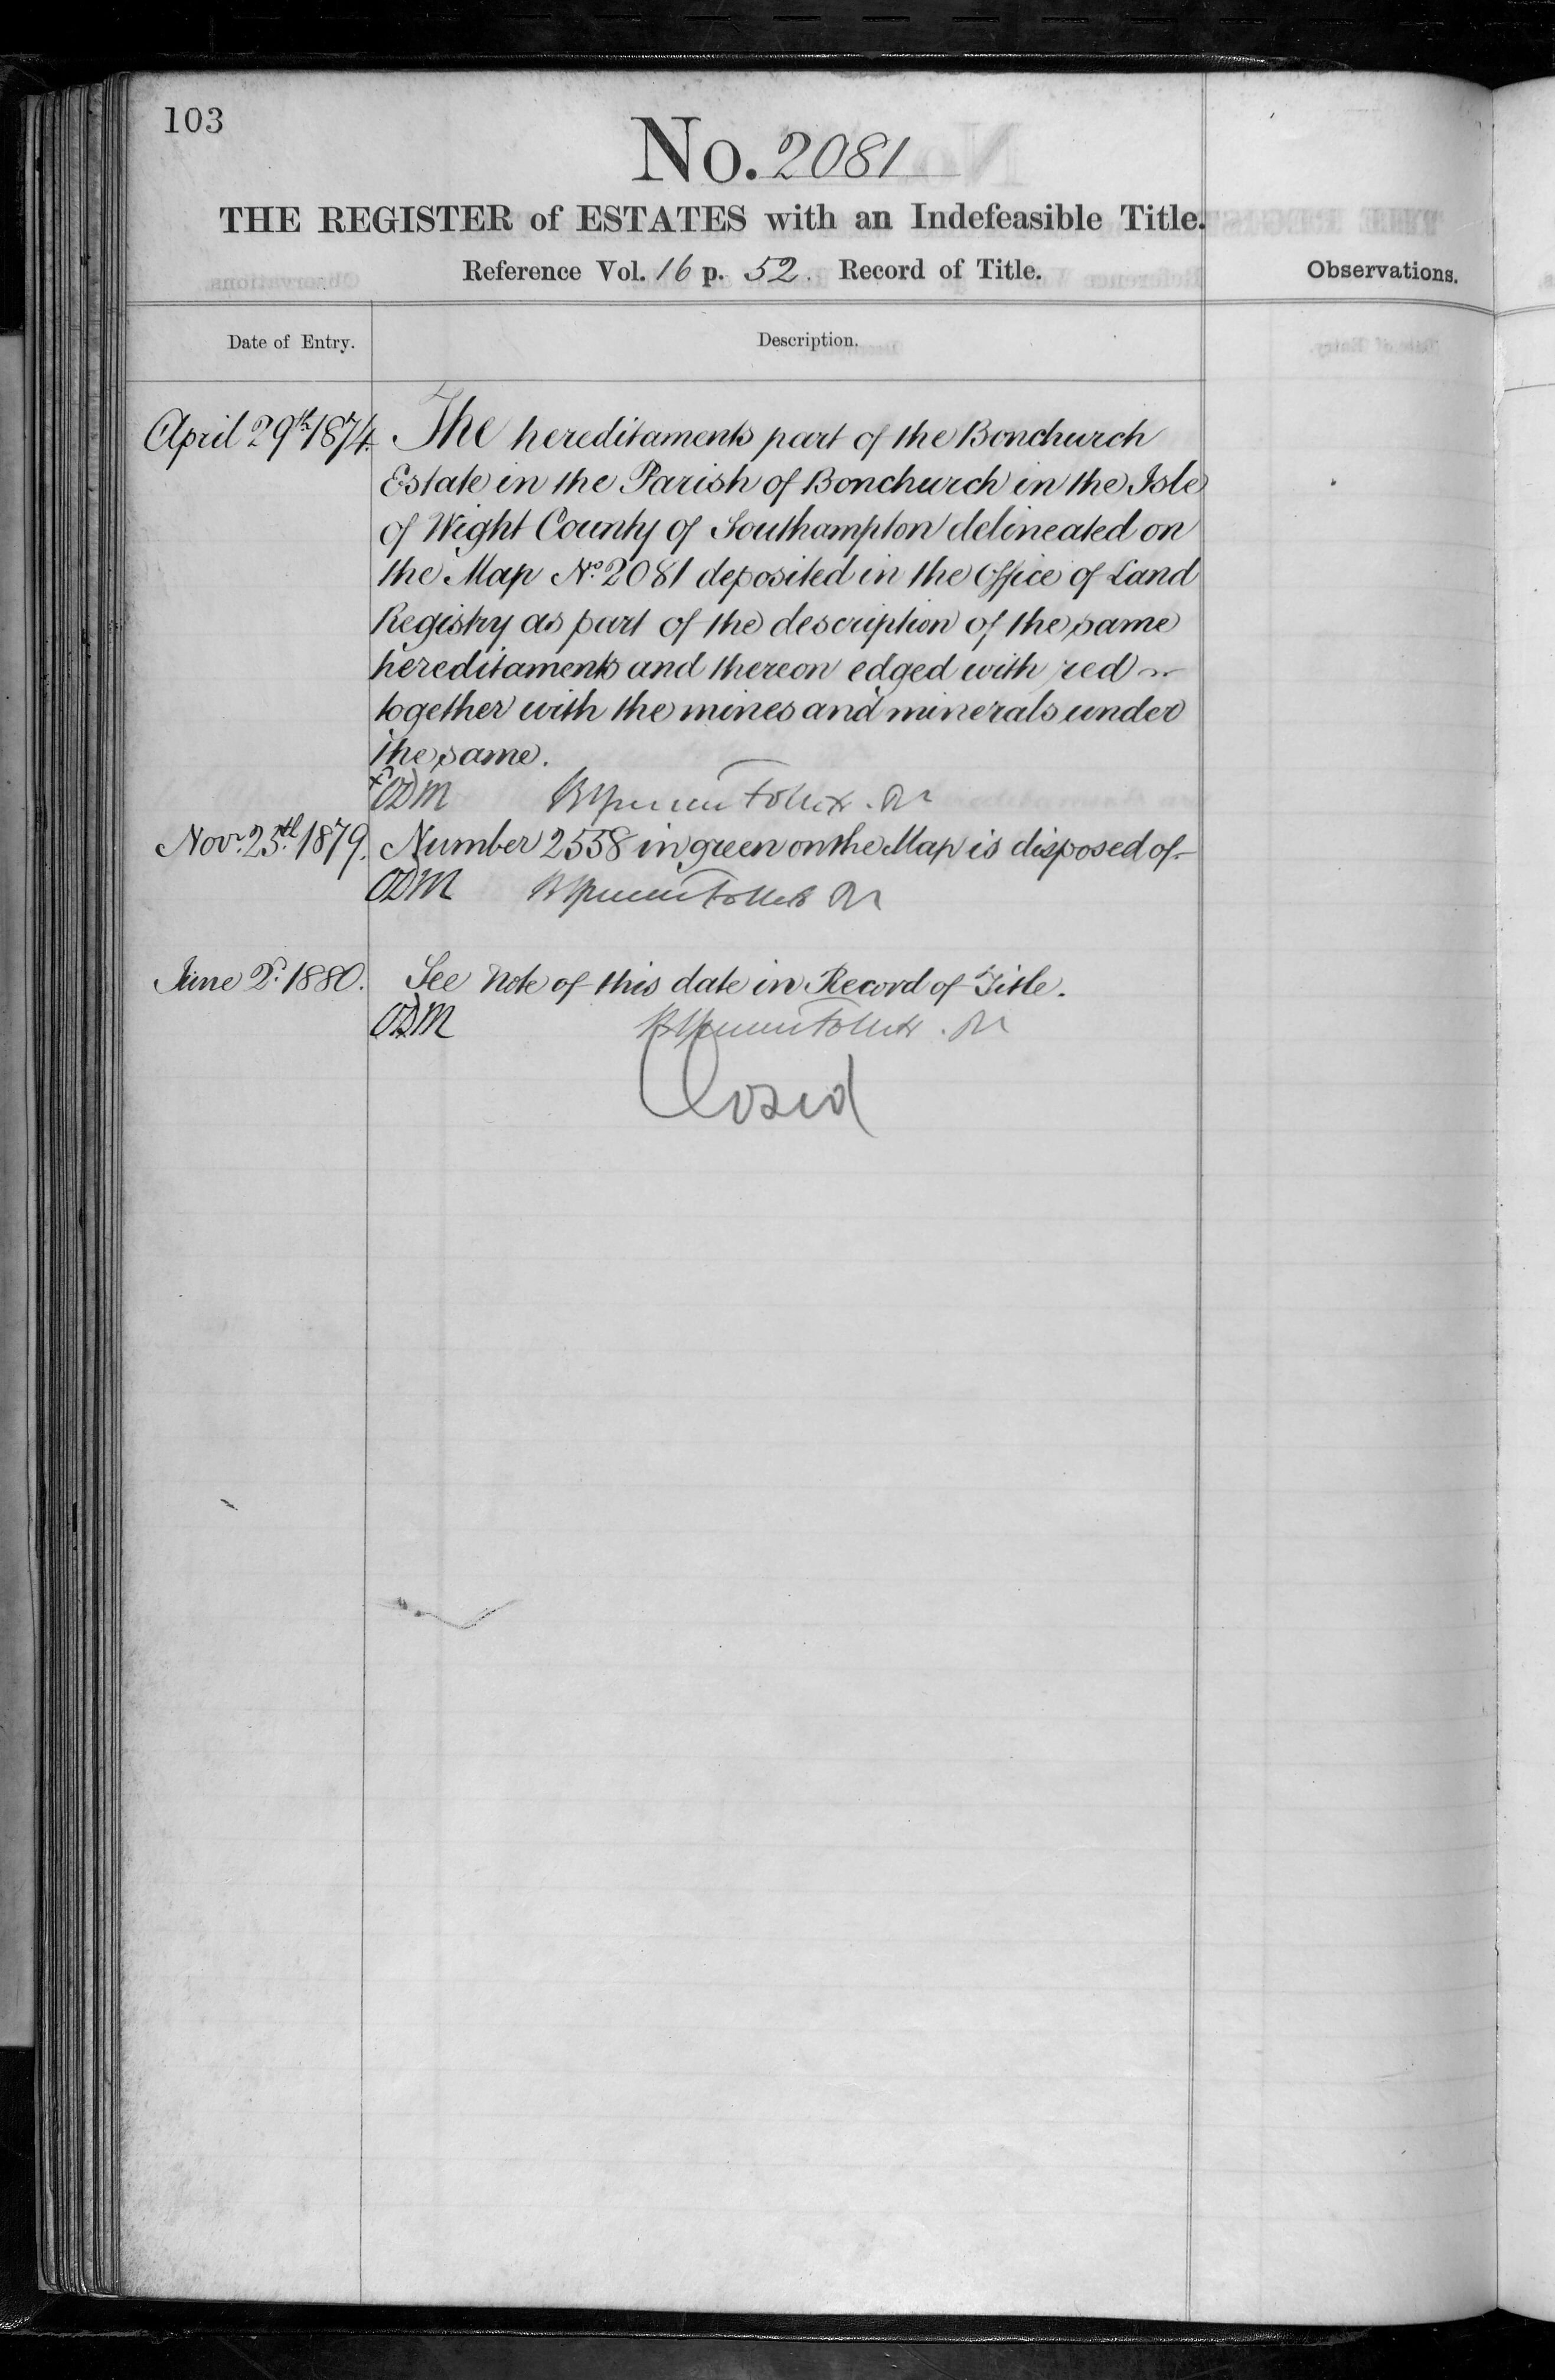 103
No. 2081
THE REGISTER of ESTATES with an Indefeasible Title.
Reference Vol. 16 p. 52. Record of Title.
Observations.
Date of Entry.
Description.
April 29th 1874. The hereditaments part of the Bonchurch
Estate in the Parish of Bonchurch in the Isle
of Wight County of Southampton delineated on
the Map No. 2081 deposited in the Office of Land
Registry as part of the description of the same
hereditaments and thereon edged with red
together with the mines and minerals under
the same.
ODM
Novr. 25th 1879. Number 2558 in green on the Map is disposed of
ODM
June 2d. 1880. See Note of this date in Record of Title.
ODM
Closed